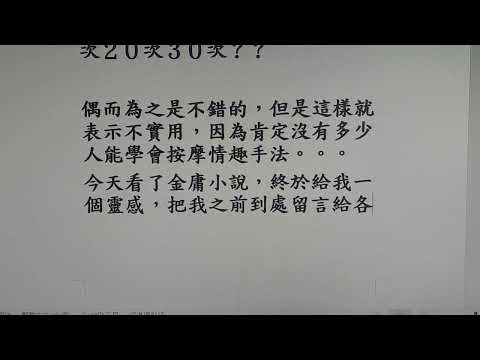 次20次30次??
偶而為之是不錯的,但是這樣就
表示不實用,因為肯定沒有多少
人能學會按摩情趣手法。。。
今天看了金庸小說,終於給我一
個靈感,把我之前到處留言給各